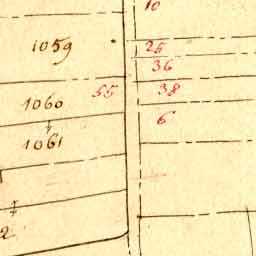 10
1059
25
36
1060
55
38
6
1061
2